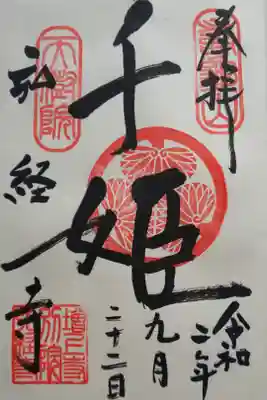 奉拝
千姫
令和二年
九月
二十二日
弘経寺